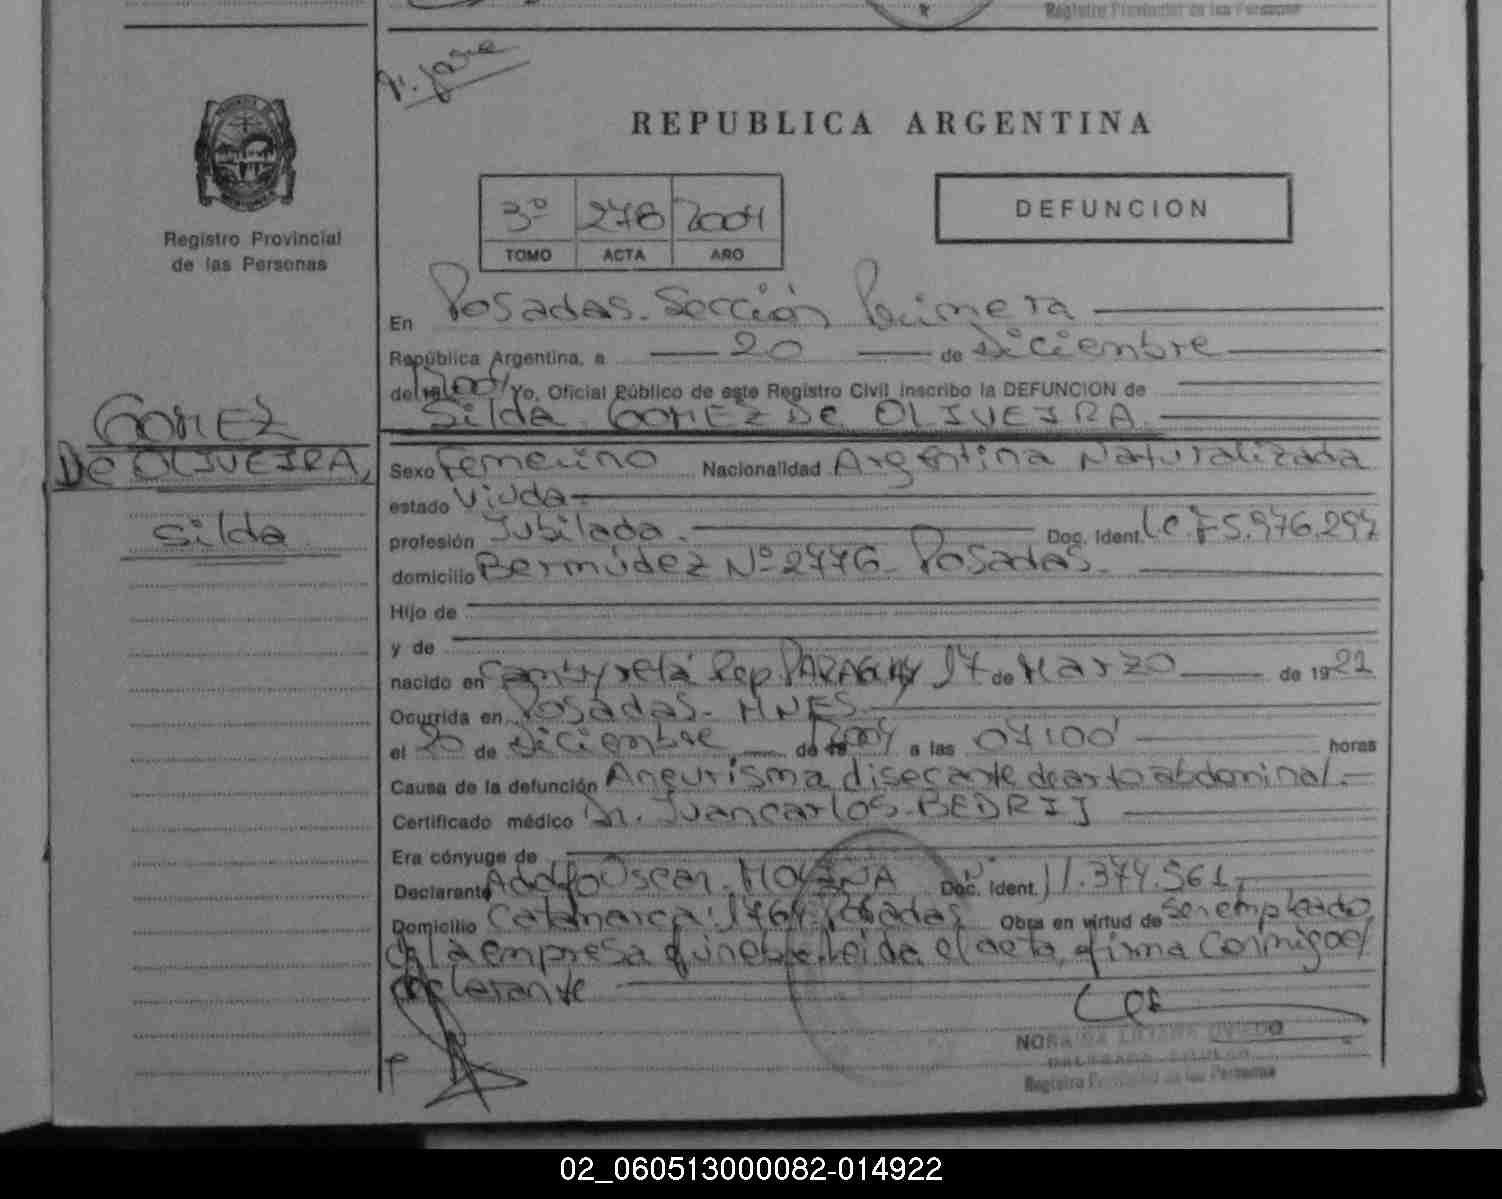 Registro Provincial de las Personas
REPUBLICA ARGENTINA
3º 276 2004
TOMO ACTA AÑO
DEFUNCION
Registro Provincial
de las Personas
GOMEZ
De OLIVEIRA,
Silda
En Posadas. Sección Primera
República Argentina, a 20 de Diciembre
de 2004 Yo, Oficial Público de este Registro Civil inscribo la DEFUNCION de
Silda GOMEZ De OLIVEIRA
Sexo Femenino Nacionalidad Argentina Naturalizada
estado Viuda
profesión Jubilada. Doc. Ident. L.C. F 5.976.297
domicilio Bermúdez Nº 2776 Posadas.
Hijo de
y de
nacido en Rep. PARAGUAY 17 de Marzo de 1922
Ocurrida en Posadas. MNES.
el 20 de Diciembre de 2004 a las 07:00 horas
Causa de la defunción Aneurisma disecante de aorto abdominal.
Certificado médico Dr. Juan carlos BEDRIJ
Era cónyuge de
Declarante Adolfo Oscar MOLINA Doc. Ident. 11.374.561
Domicilio Catamarca 1764 Posadas Obra en virtud de ser empleado
de la empresa funebre. Leida el acta, firma conmigo el
declarante
OVIEDO
Registro Provincial de las Personas
02_060513000082-014922